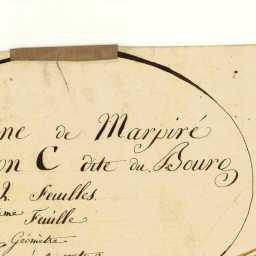 ne de Marpiré
on C dite du Bourg
2 Feuilles.
ème Feuille
Géomètre